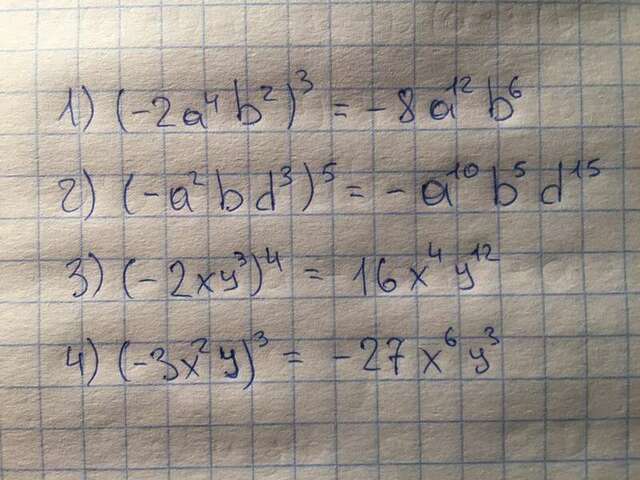 1) (-2a⁴b²)³ = -8a¹²b⁶
2) (-a²bd³)⁵ = -a¹⁰b⁵d¹⁵
3) (-2xy³)⁴ = 16x⁴y¹²
4) (-3x²y)³ = -27x⁶y³